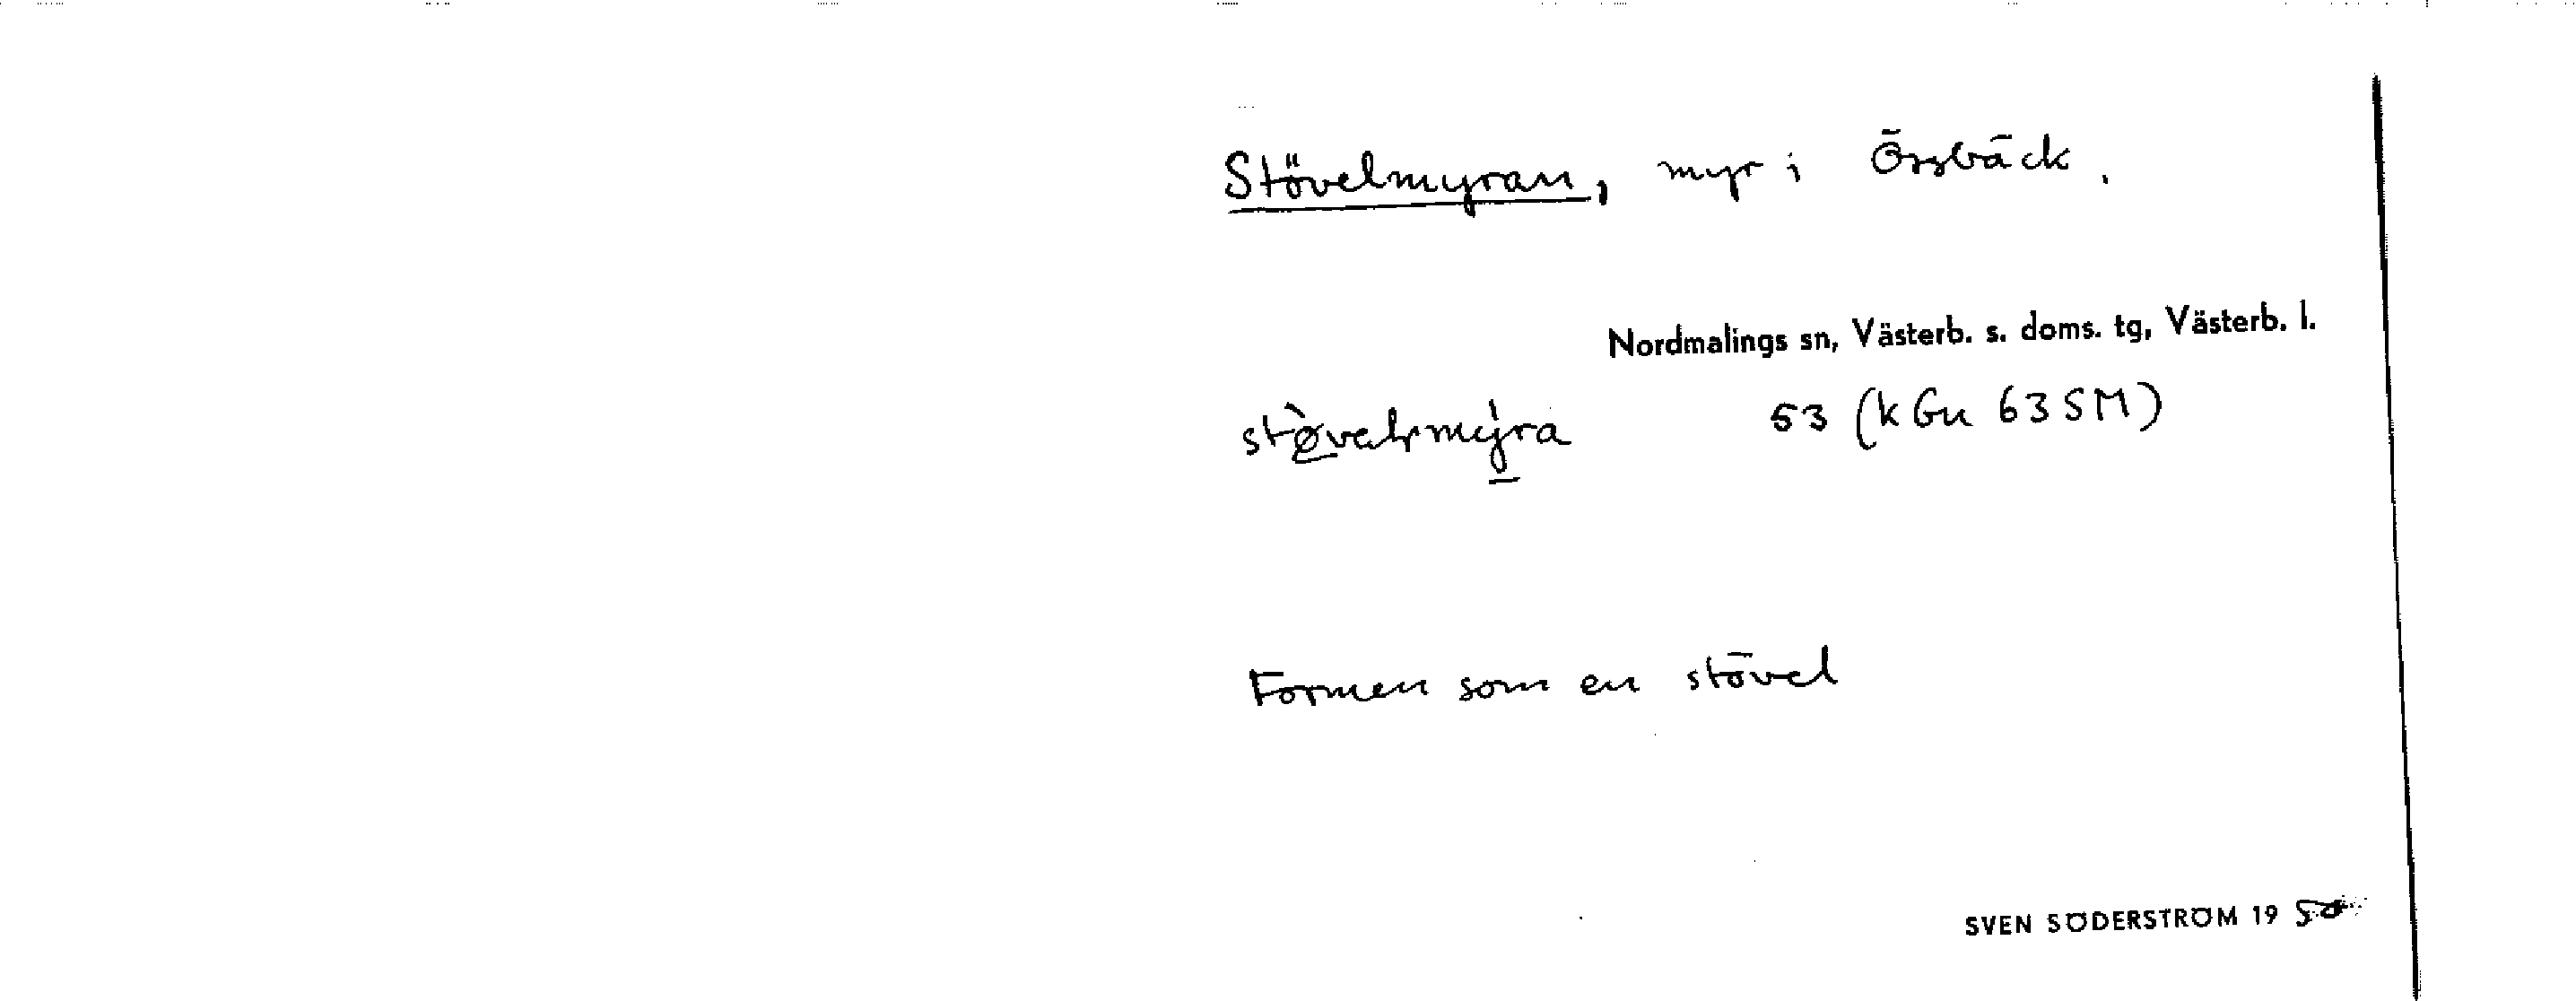 Stövelmyran, myr i Örsbäck.
Nordmalings sn, Västerb. s. doms. tg, Västerb. l.
53 (k Gu 63 SM)
Formen som en stövel
SVEN SÖDERSTRÖM 19 50